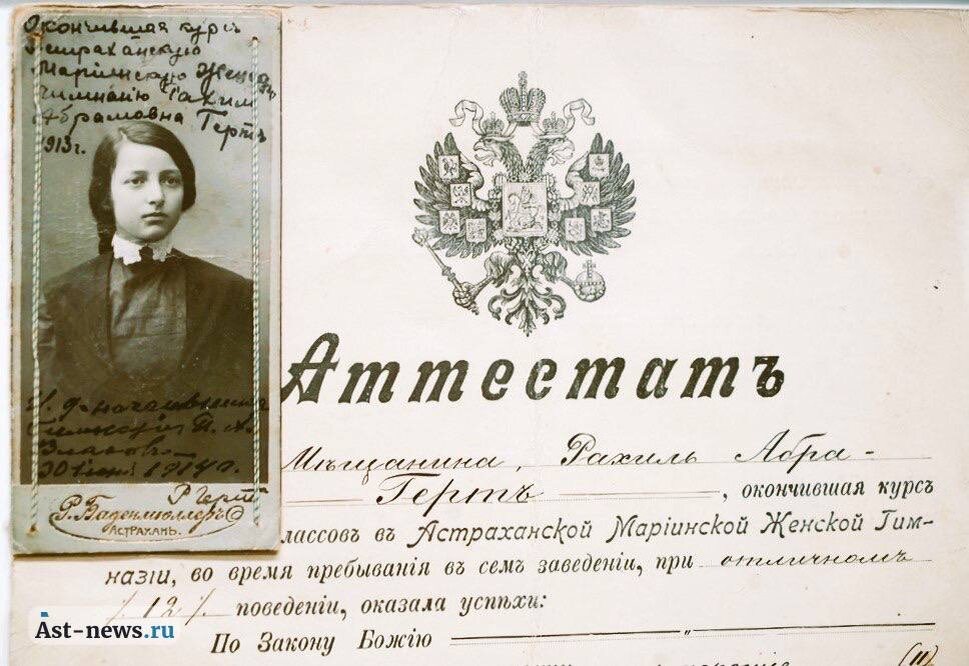 Окончившая курсъ
Астраханскую
Маріинскую Женск.
гимназію Рахиль
Абрамовна Гертъ
1913 г.
И. д. начальницы
гимназіи
1914 г.
Р Гертъ
Р. Баденмюллеръ
АСТРАХАНЬ.
Аттестатъ
Мѣщанина, Рахиль Абра-
Гертъ, окончившая курсъ
лассовъ въ Астраханской Маріинской Женской Гим-
назіи, во время пребыванія въ семъ заведеніи, при отличномъ
/.12/. поведеніи, оказала успѣхи:
По Закону Божію "
(11)
Ast-news.ru